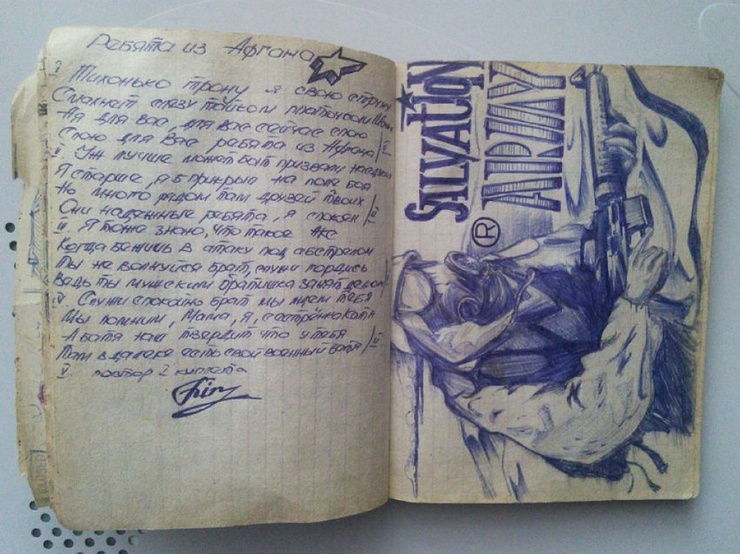 Ребята из Афгана
I Тихонько трону я свою струну
Смахнет слезу тайком платочком Мама
Ня для вас, для вас сейчас спою
Спою для Вас ребята из Афгана /II
II Уж лучше может быт призвали
Я старше, я б прикрыл на поле боя
Но много рядом там друзей твоих
Они надежные ребята, я спокоен /II
II. Я тоже знаю, что такое
Когда бежишь в атаку под обстрелом
Ты не волнуйся брат, служи гордись
Ведь ты мужским братишка занят делом
V. Служи спокойно брат мы ждем тебя
Мы помним, Мама, я, сестрёнка Катя
А батя наш твердит что у тебя
Там в далеке есть свой военный батя /II
V повтор 2 куплета
SALVATION
ARMY
®